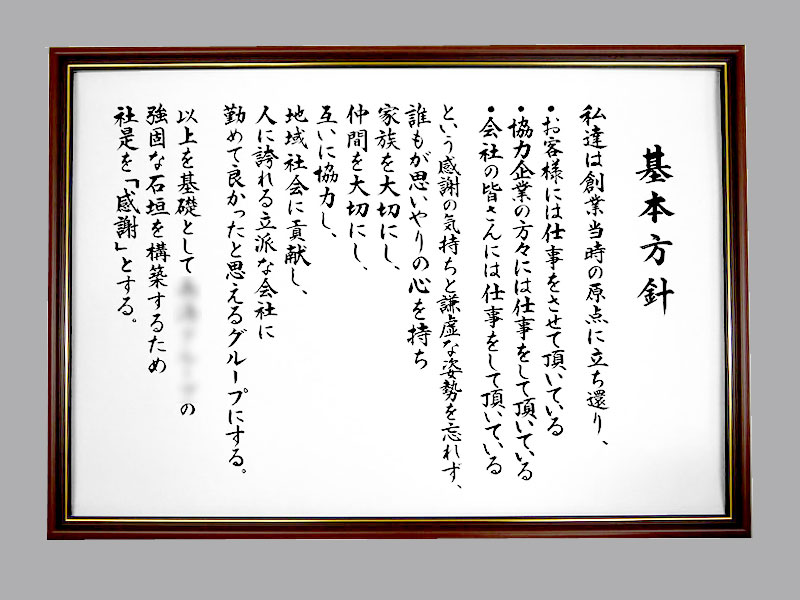 基本方針
私達は創業当時の原点に立ち還り、
・お客様には仕事をさせて頂いている
・協力企業の方々には仕事をして頂いている
・会社の皆さんには仕事をして頂いている
という感謝の気持ちと謙虚な姿勢を忘れず、
誰もが思いやりの心を持ち
家族を大切にし、
仲間を大切にし、
互いに協力し、
地域社会に貢献し、
人に誇れる立派な会社に
勤めて良かったと思えるグループにする。
以上を基礎として の
強固な石垣を構築するため
社是を「感謝」とする。